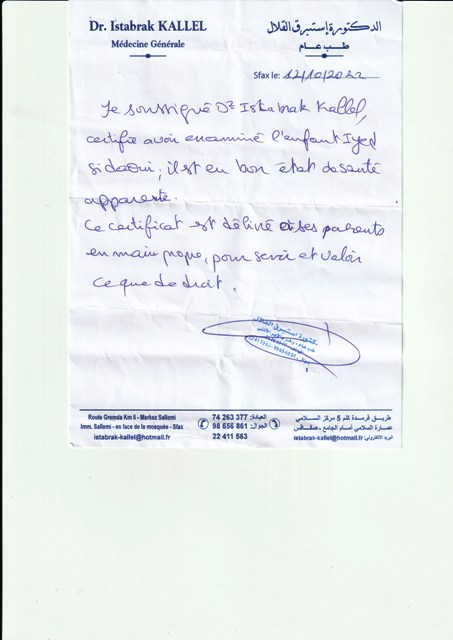 Dr. Istabrak KALLEL
Médecine Générale
الدكتورة إستبرق القلال
طب عام
Sfax le: 12/10/2022
Je soussigné Dr Istabrak Kallel,
certifie avoir examiné l'enfant Iyed
; il est en bon état de santé
apparente.
Ce certificat est délivré à ses parents
en main propre, pour servir et valoir
ce que de droit.
دكتورة إستبرق القلال
Route Gremda Km 5 - Merkez Sallemi
Imm. Sallemi - en face de la mosquée - Sfax
istabrak-kallel@hotmail.fr
74 263 377 العيادة:
98 656 861 الجوال:
22 411 563
طريق قرمدة كلم 5 مركز السلامي
عمارة السلامي أمام الجامع - صفاقس
البريد الالكتروني: istabrak-kallel@hotmail.fr